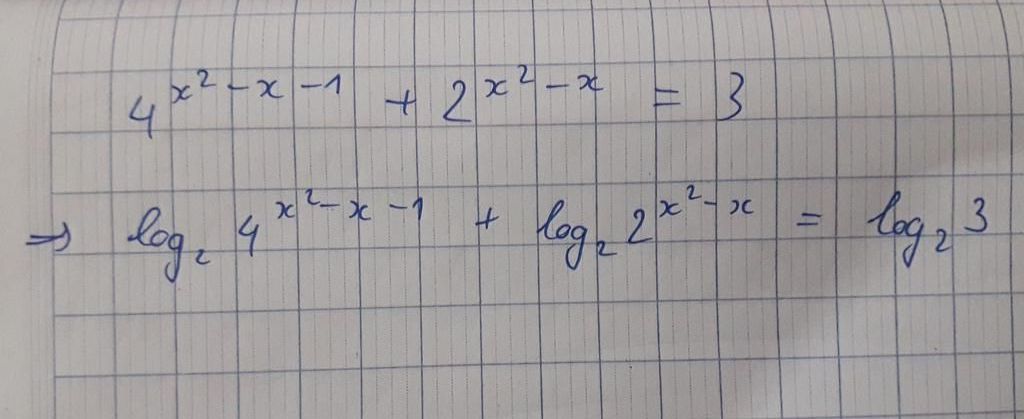 4^{x^2 - x - 1} + 2^{x^2 - x} = 3
⇒ log_2 4^{x^2 - x - 1} + log_2 2^{x^2 - x} = log_2 3